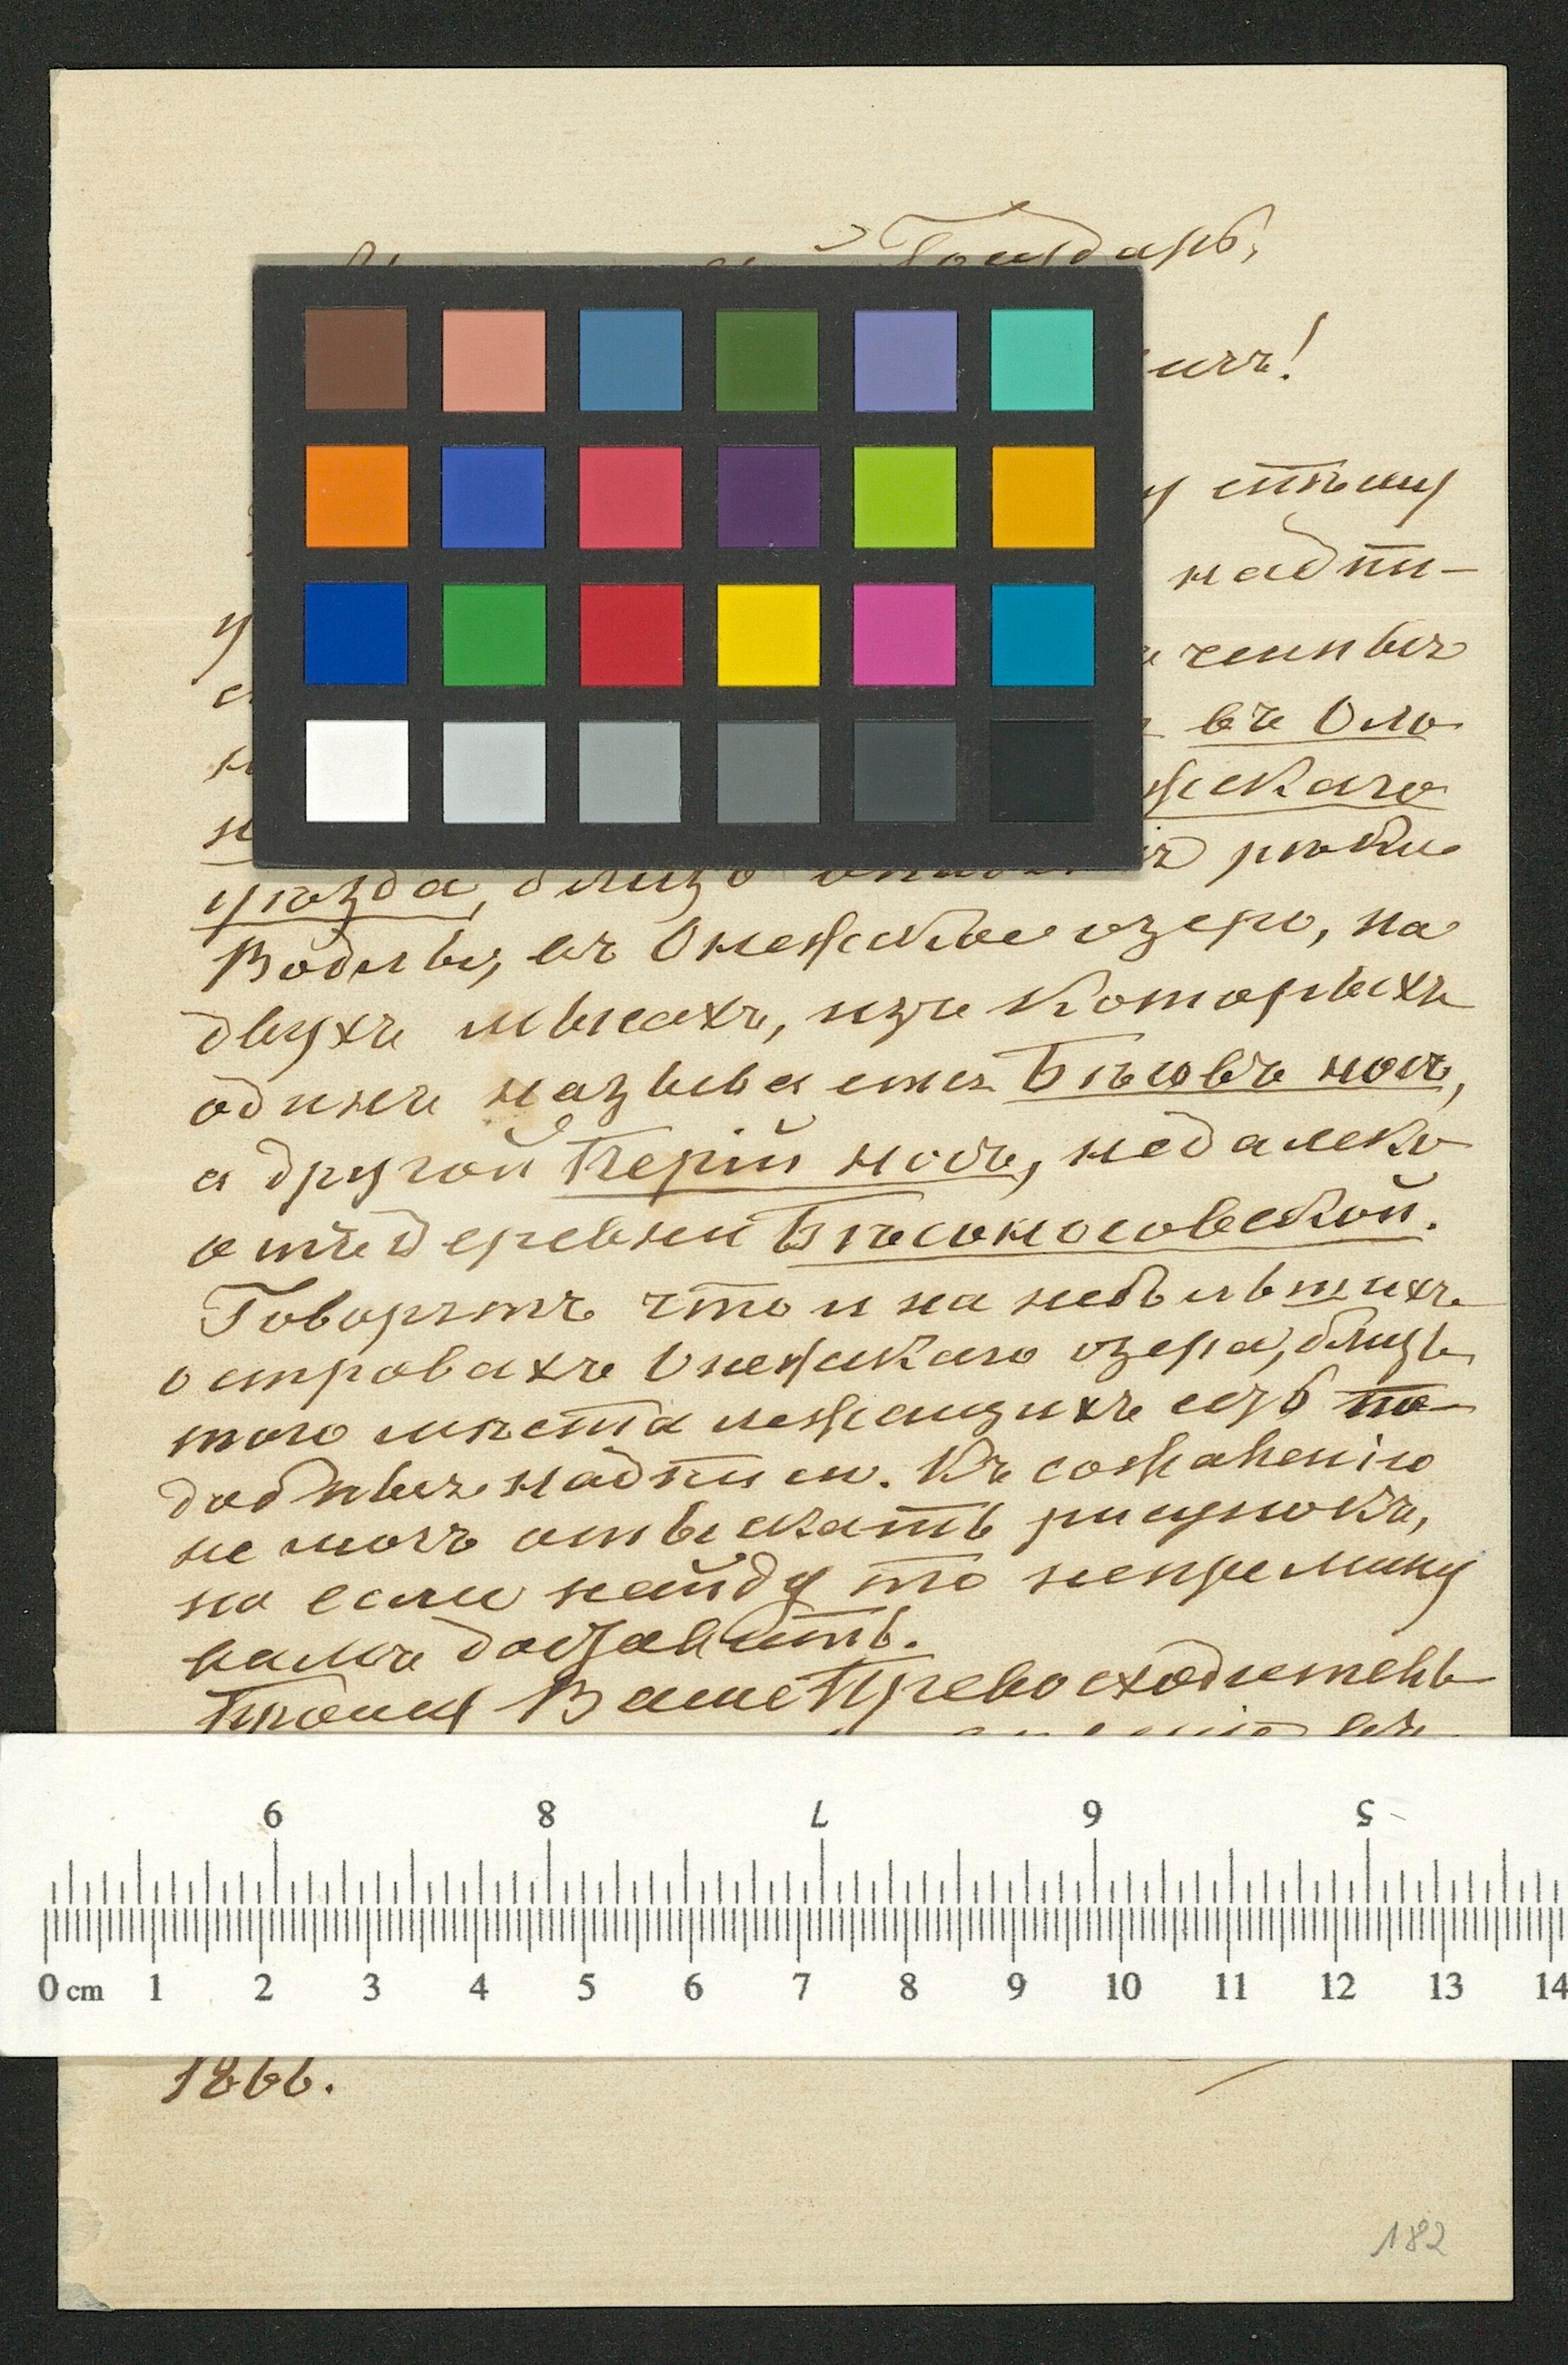 Государь,
спѣшу
надпи-
въ Оло
уѣзда, близъ рѣки
Водлы, въ Онежское озеро, на
двухъ мысахъ, изъ которыхъ
одинъ называется Бѣсовъ носъ,
а другой Перій носъ, недалеко
отъ деревни Бѣсоносовской.
Говорятъ что и на небольшихъ
островахъ Онежскаго озера, близь
того мѣста лежащихъ есть по-
добныя надписи. Къ сожалѣнію
не могъ отыскать рисунокъ,
но если найду то непремину
вамъ доставить.
Прошу Ваше Превосходитель
9 8 7 6 5
0 cm 1 2 3 4 5 6 7 8 9 10 11 12 13 14
1866.
182